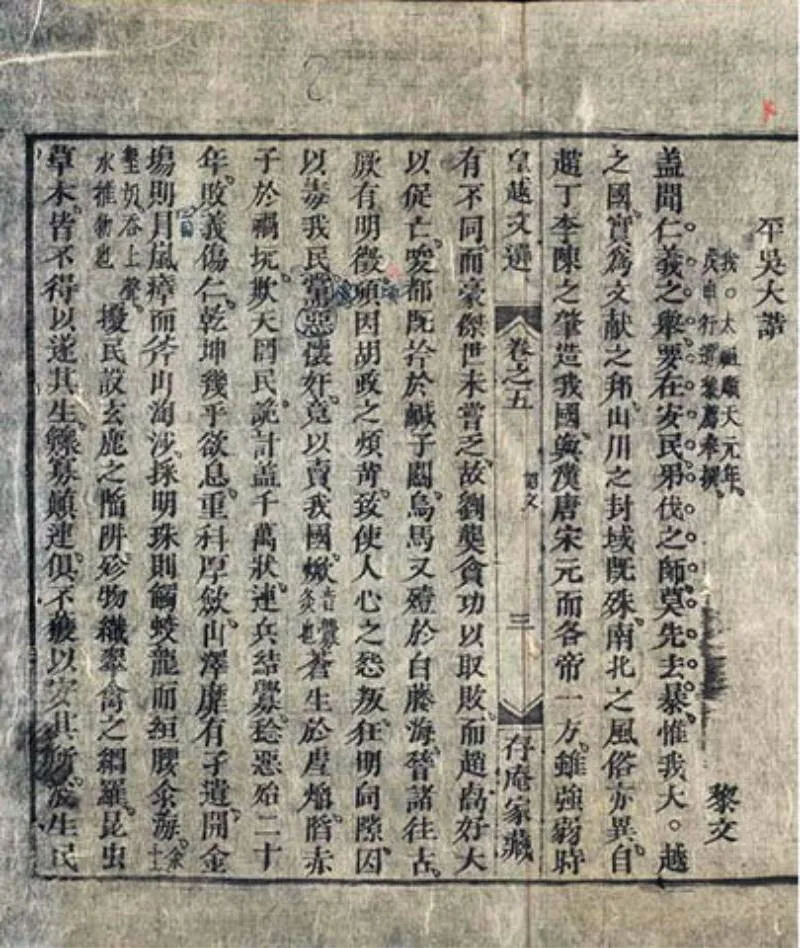 平吳大誥
我○太祖順天元年
戊申行遣黎廌奉撰
黎文
蓋聞仁義之舉要在安民弔伐之師莫先去暴惟我大○越
之國實爲文献之邦山川之封域既殊南北之風俗亦異自
趙丁李陳之肇造我國與漢唐宋元而各帝一方雖強弱時
皇越文選 卷之五 三 存庵家藏
有不同而豪傑世未嘗乏故劉龑貪功以取敗而趙卨好大
以促亡唆都既擒於鹹子關烏馬又殪於白藤海稽諸往古
厥有明徵頃因胡政之煩苛致使人心之怨叛狂明伺隙因
以毒我民黨惡懷奸竟以賣我國焮蒼生於虐焰陷赤
子於禍坑欺天罔民詭計蓋千萬狀連兵結釁稔惡殆二十
年敗義傷仁乾坤幾乎欲息重科厚歛山澤靡有孑遺開金
塲則冐嵐瘴而斧山淘沙採明珠則觸蛟龍而緪腰汆海
水推物也
擾民設玄鹿之陷阱殄物織翠禽之網羅昆虫
草木皆不得以遂其生鰥寡顛連俱不獲以安其所浚生民